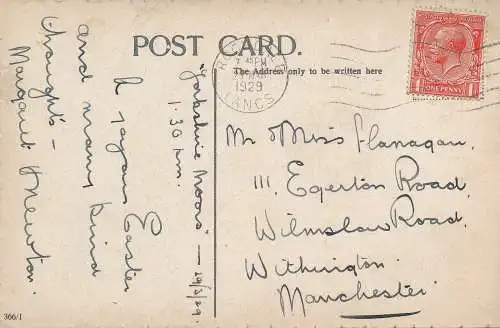 POST CARD.
The Address only to be written here
7 45 PM
1929
LANCS
ONE PENNY
"Yorkshire Moors" — 29/3/29
1.30 p.m.
A joyous Easter
and many kind
thoughts —
Margaret Newton.
Mr & Miss Flanagan.
111, Egerton Road,
Wilmslow Road,
Withington.
Manchester.
366/1